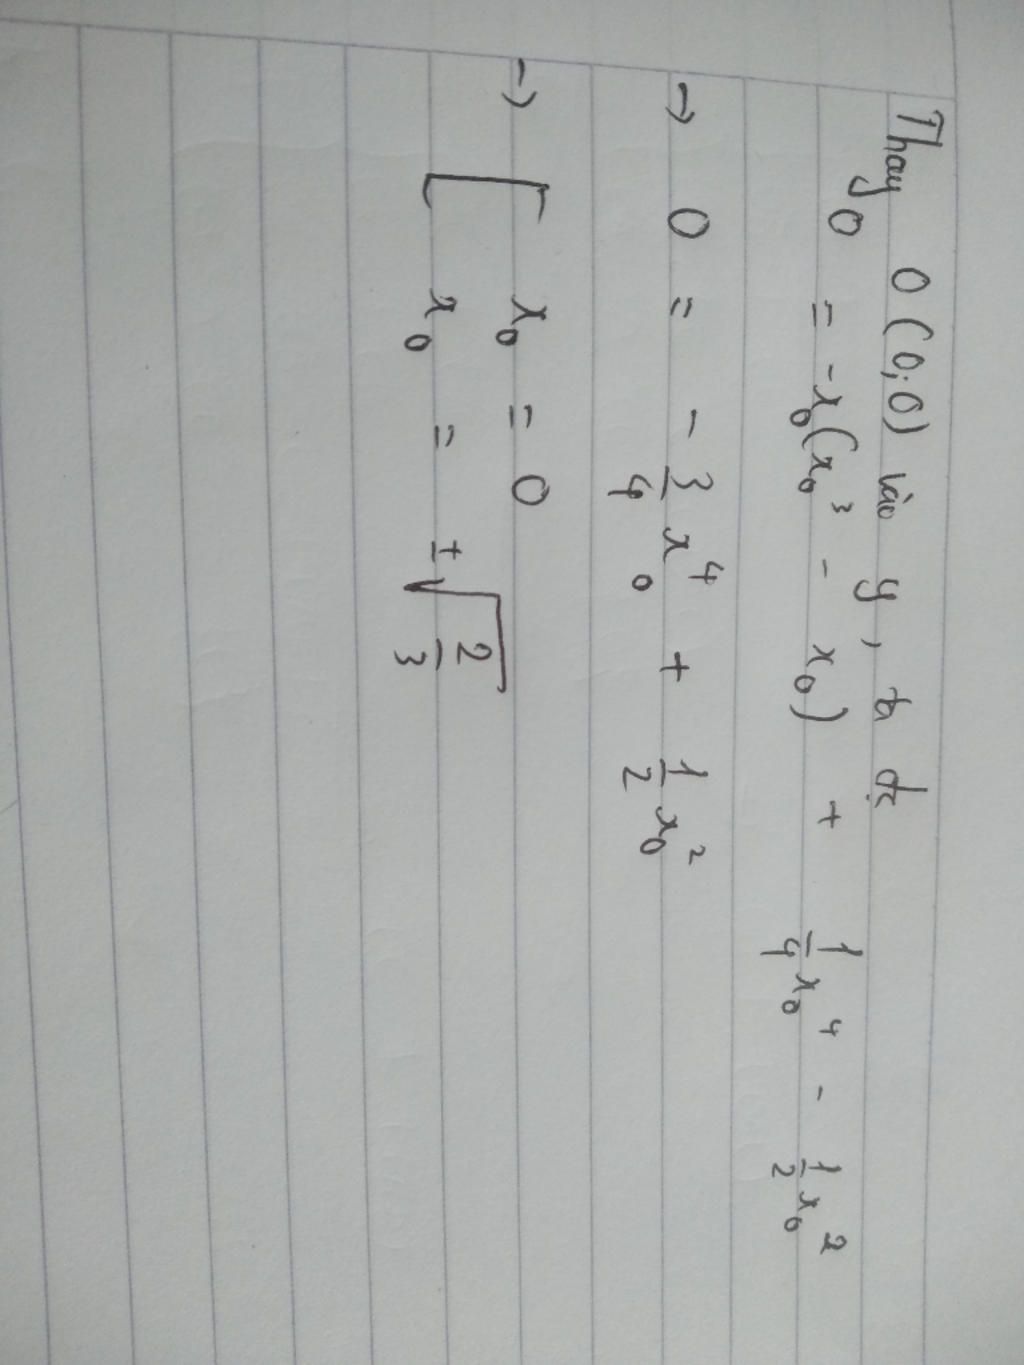 Thay O(0;0) vào y, ta đc
y0 = -x₀(x₀³ - x₀) + 1/4 x₀⁴ - 1/2 x₀²
→ 0 = - 3/4 x₀⁴ + 1/2 x₀²
→ [ x₀ = 0
x₀ = ± √(2/3)